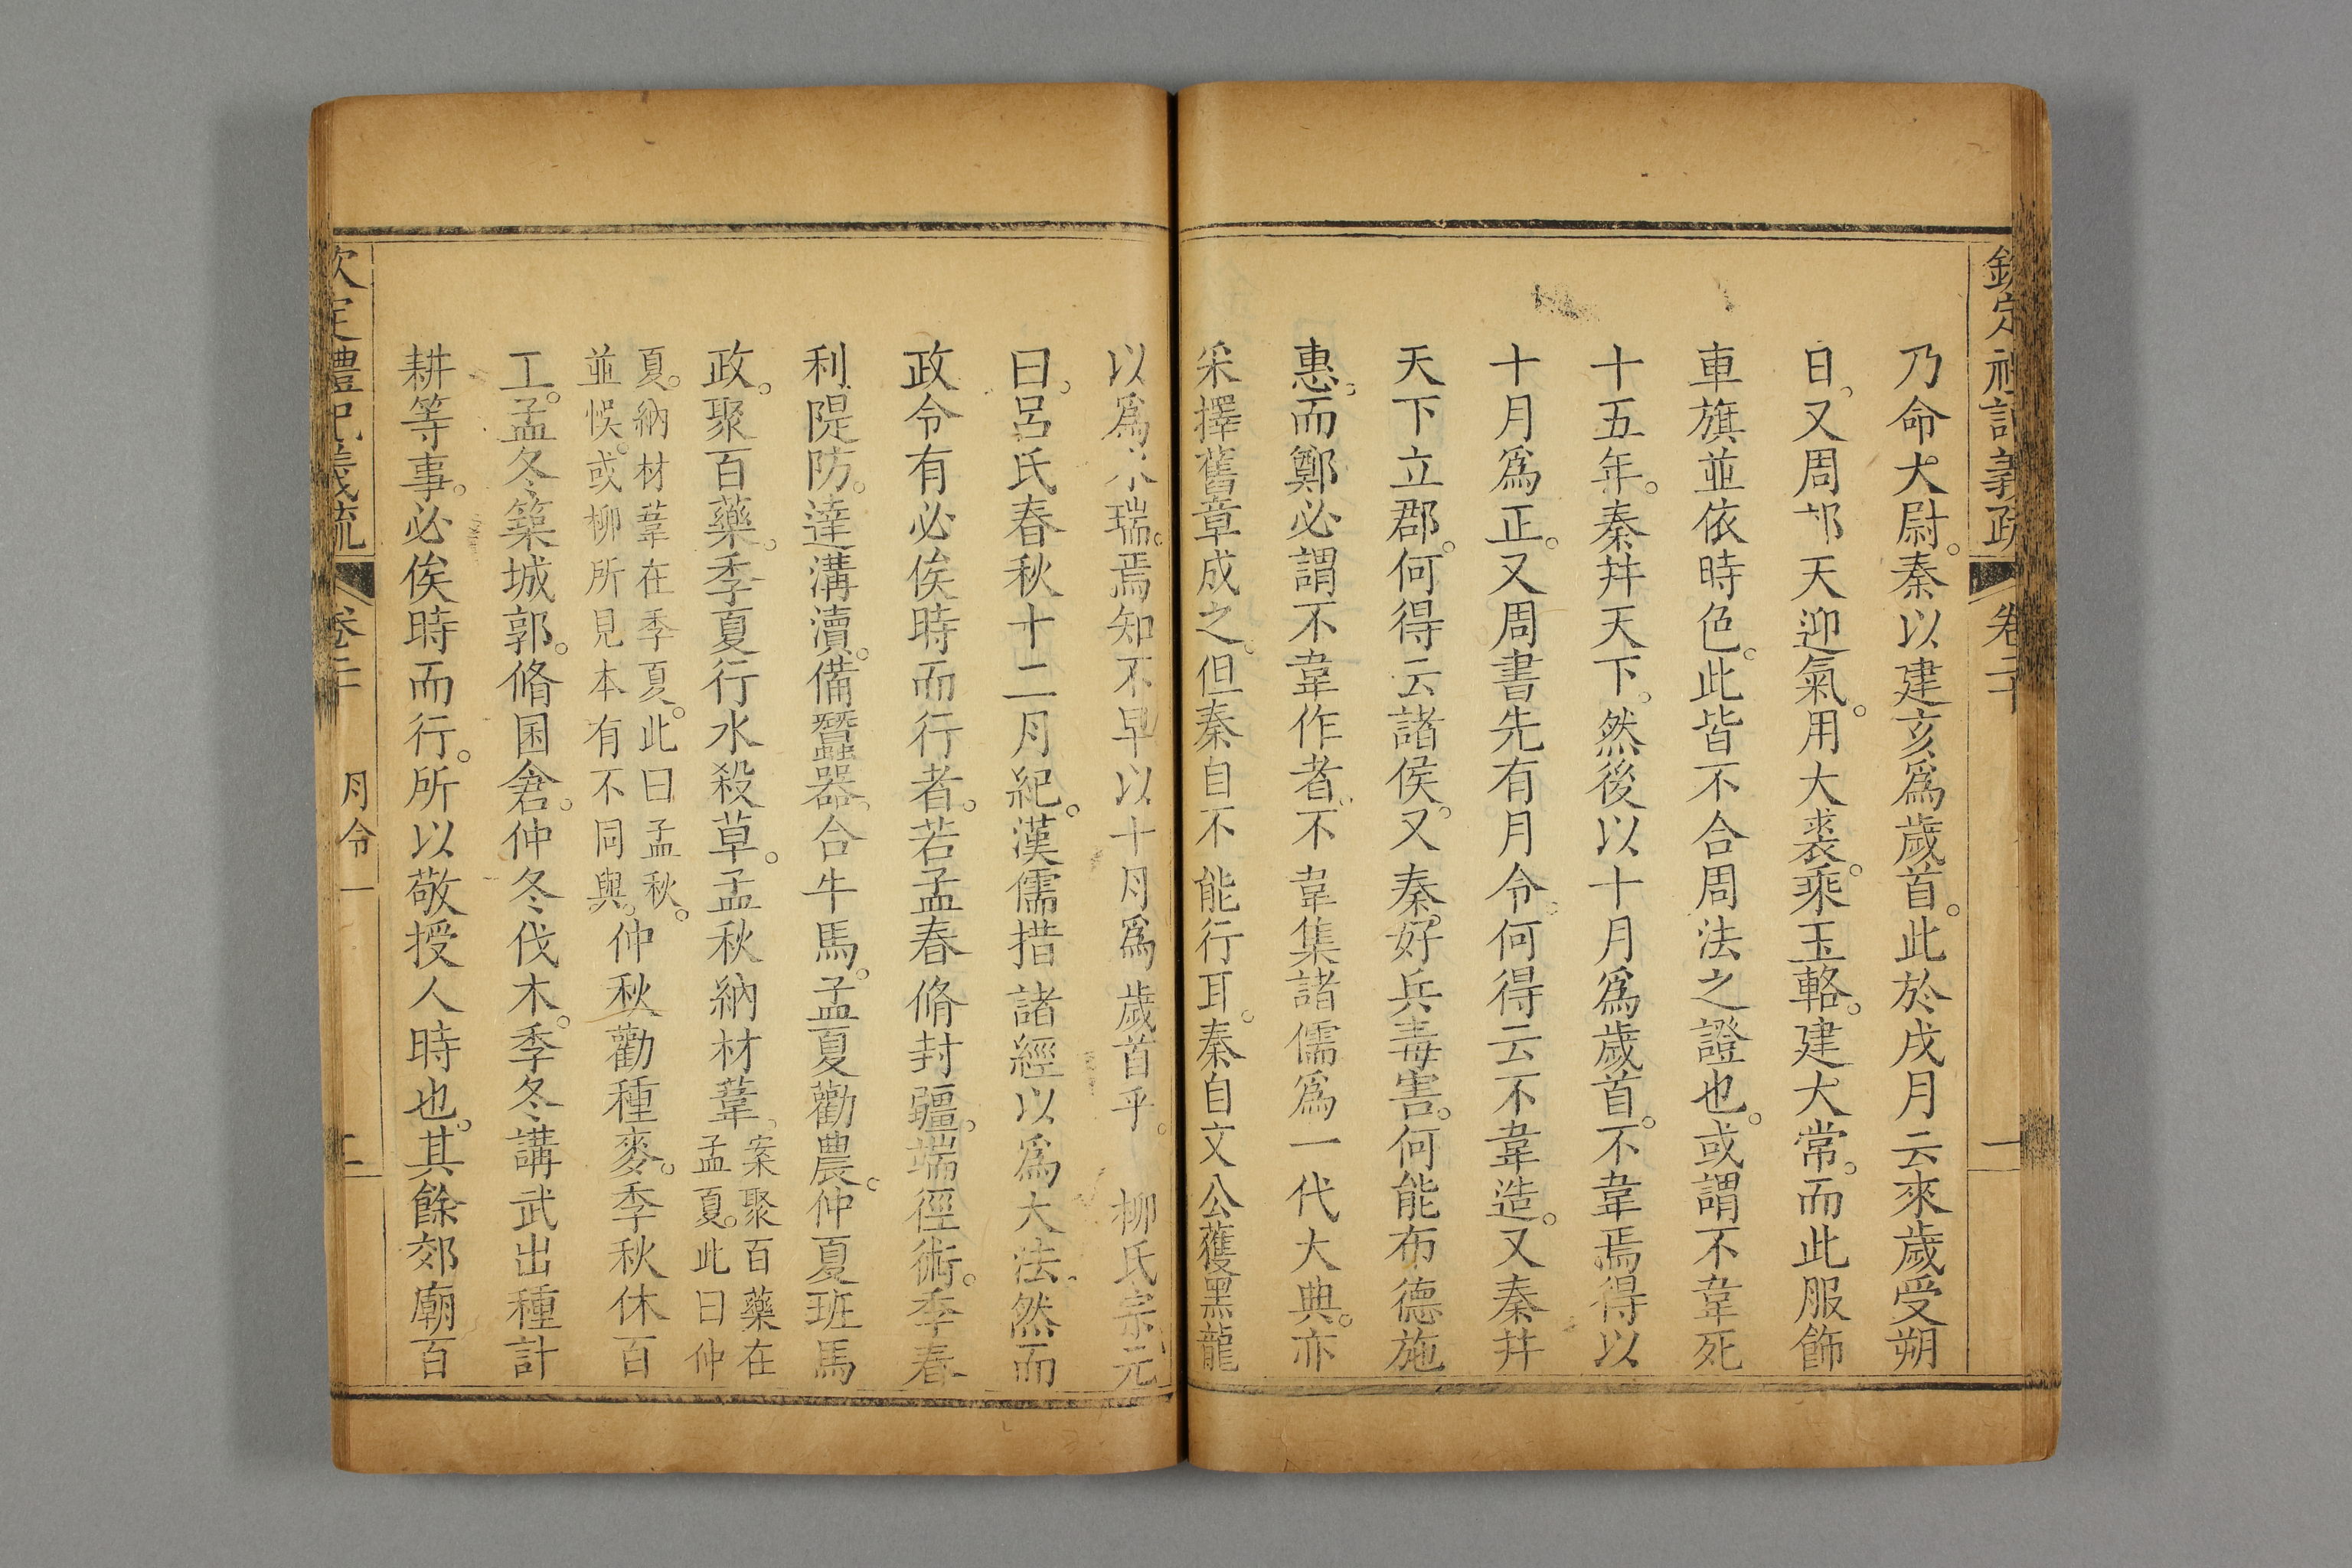 乃命大尉。秦以建亥爲歲首。此於戌月云來歲受朔
日。又周郊天迎氣。用大裘。乘玉輅。建大常。而此服飾
車旗並依時色。此皆不合周法之證也。或謂不韋死
十五年。秦幷天下。然後以十月爲歲首。不韋焉得以
十月爲正。又周書先有月令。何得云不韋造。又秦幷
天下立郡。何得云諸侯。又秦好兵毒害。何能布德施
惠。而鄭必謂不韋作者。不韋集諸儒爲一代大典。亦
采擇舊章成之。但秦自不能行耳。秦自文公獲黑龍
以爲水瑞。焉知不早以十月爲歲首乎。 柳氏宗元
曰。呂氏春秋十二月紀。漢儒措諸經以爲大法。然而
政令有必俟時而行者。若孟春脩封疆。端徑術。季春
利隄防。達溝瀆。備蠶器。合牛馬。孟夏勸農。仲夏班馬
政。聚百藥。季夏行水殺草。孟秋納材葦。案聚百藥在
孟夏。此曰仲
夏。納材葦在季夏。此曰孟秋。
並悞。或柳所見本有不同與。仲秋勸種麥。季秋休百
工。孟冬築城郭。脩囷倉。仲冬伐木。季冬講武出種計
耕等事。必俟時而行。所以敬授人時也。其餘郊廟百
欽定禮記義疏 卷二十 月令一 二